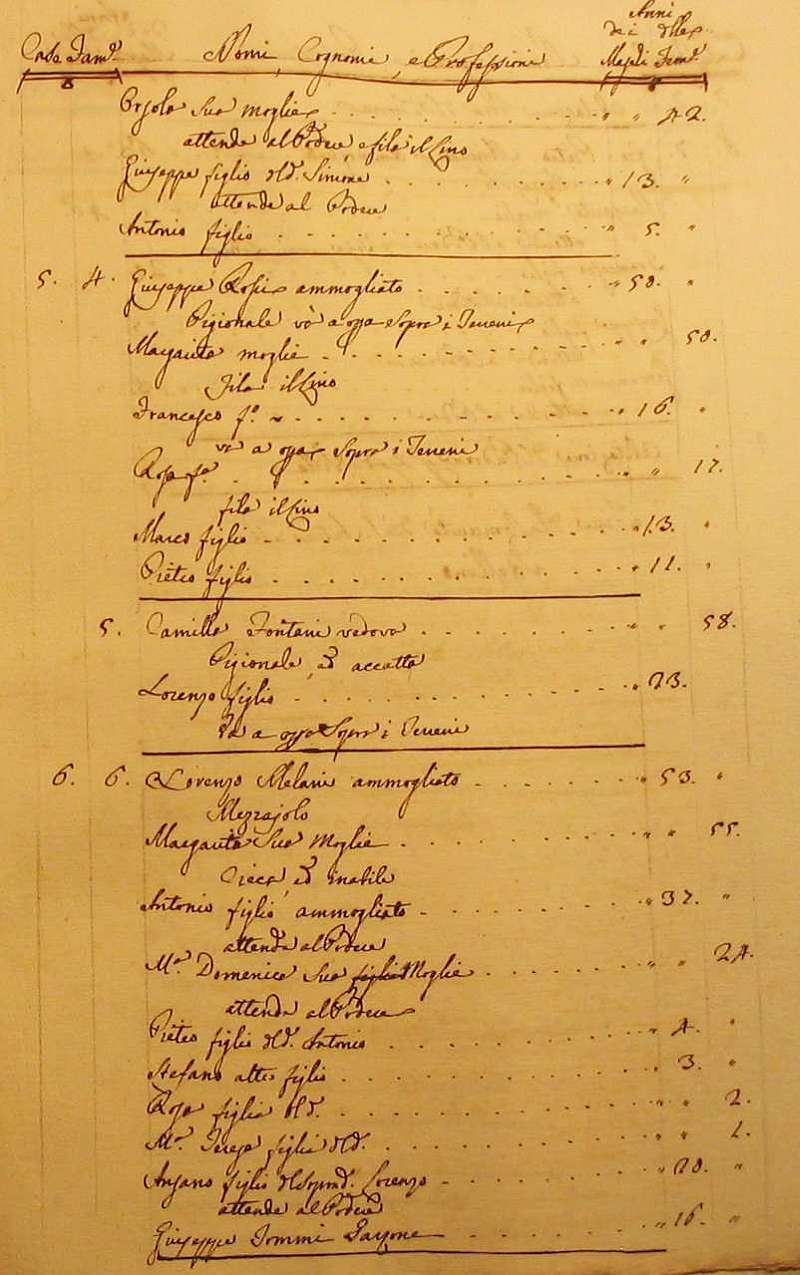 Anni
dei delle
Case Famᵉ. Nomi, Cognomi, e Professioni Maschi Femᵉ.
Orsola Sua Moglie 42.
attende al Podere, e fila il Lino
Giuseppe figlio del dº. Simone 13. "
attende al Podere
Antonio figlio 5. "
5. 4. Giuseppe Rossi ammogliato 50. "
Pigionale và a opra Sopra i Terreni
Margarita moglie " 50.
Fila il Lino
Francesco fº. 16. "
và a opra Sopra i Terreni
Rosa fª. " 17.
fila il Lino
Marco figlio 13. "
Pietro figlio 11. "
5. Camilla Fontani vedova " 58.
Pigionale, ed accatta
Lorenzo figlio 23.
Và a opra Sopra i Terreni
6. 6. Lorenzo Melani ammogliato 53. "
Mezzajolo
Margarita Sua Moglie " " 55.
Cieca, ed inabile
Antonio figlio ammogliato " 37. "
attende al Podere
Mª. Domenica Sua figlia Moglie " " 24.
attende al Podere
Pietro figlio del dº. Antonio " 4. "
Stefano altro figlio 3. "
Rosa figlia del dº. " " 2.
Mª. Teresa figlia del dº. " " 1.
Ansano figlio del Sopradº. Lorenzo " 20. "
attende al Podere
Giuseppe Tommi Garzone " 16. "